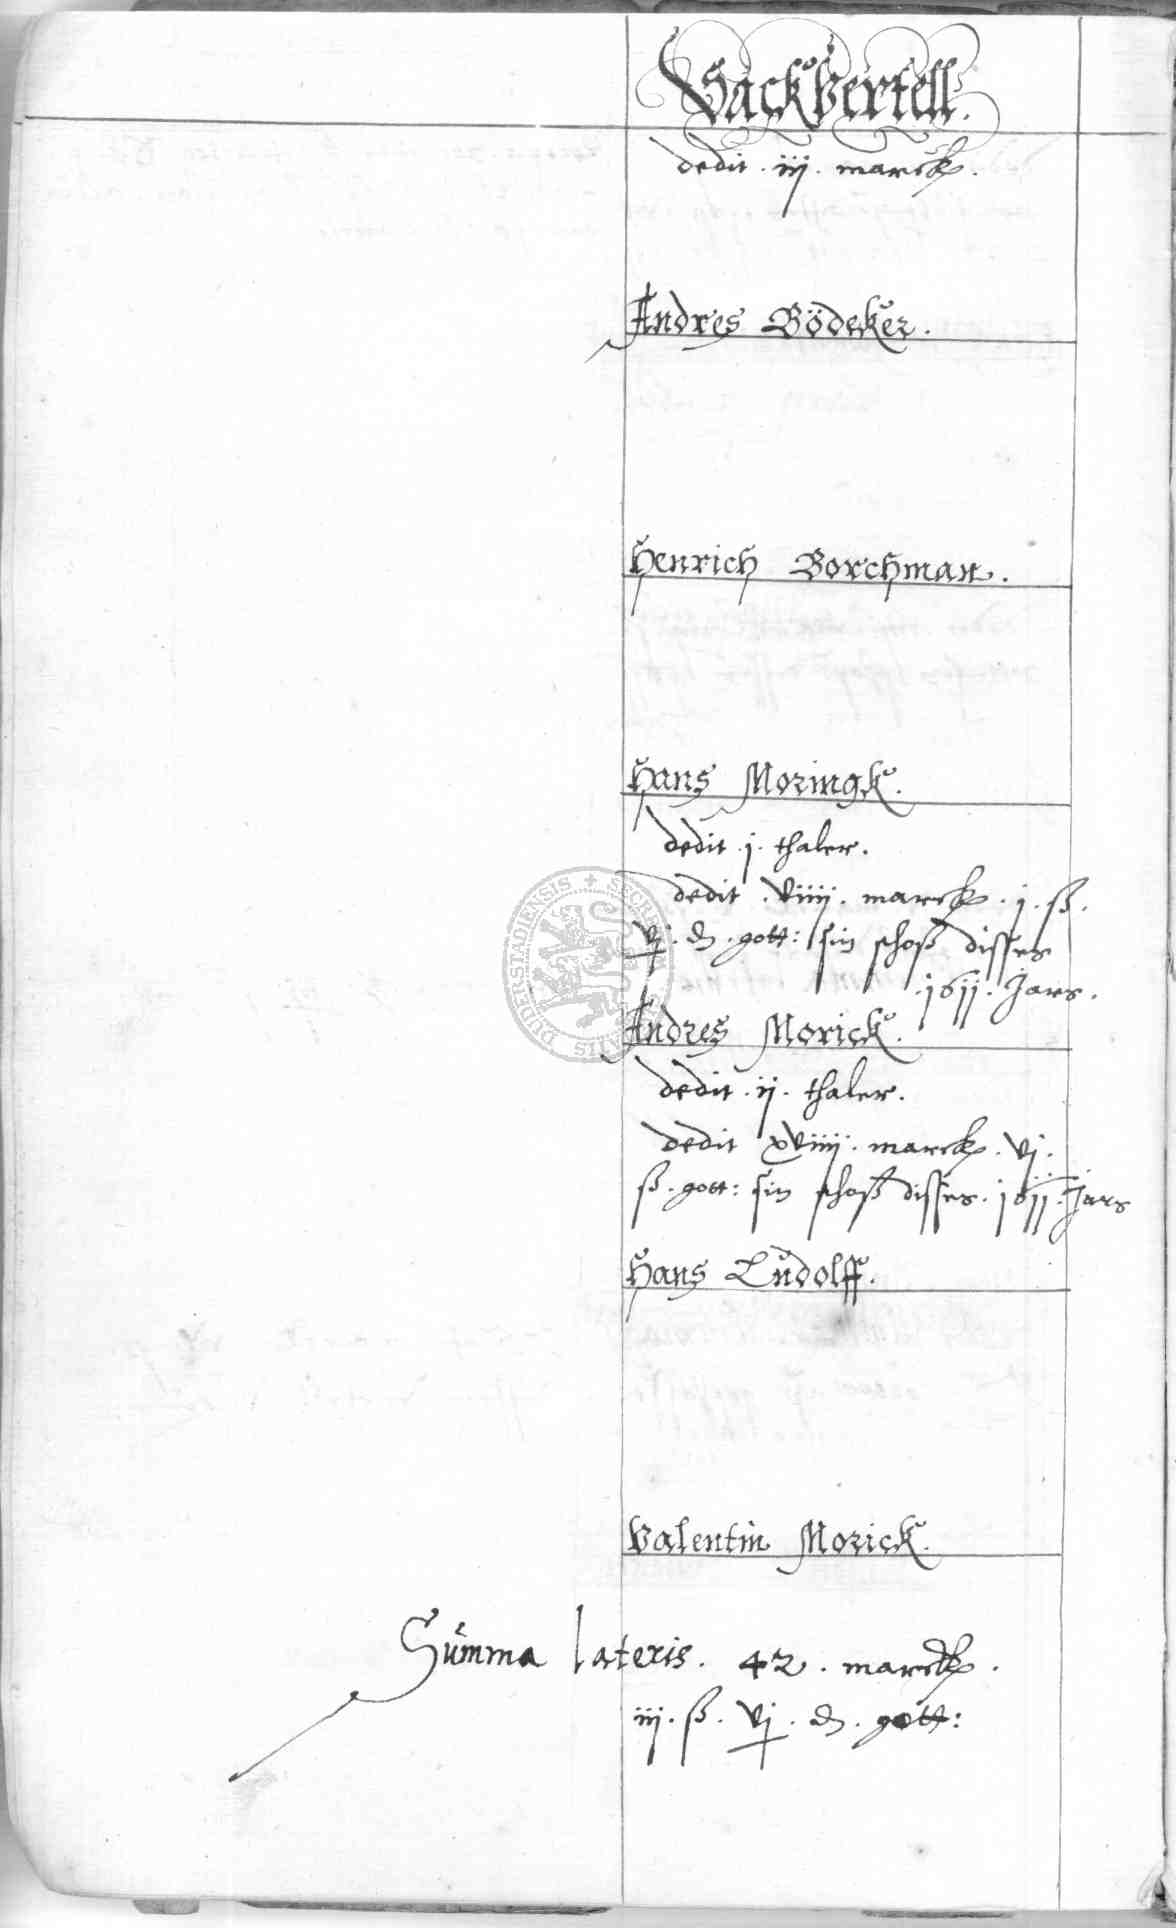 Sackvertell.
dedit . iij . marck.
Andres Bödeker.
Henrich Borchman.
Hans Moringk.
dedit . j . thaler.
dedit . viiij . marck . j . ß.
vj . d . gott: sin schoß disses
. 1611 . Jars.
Andres Morick.
dedit . ij . thaler.
dedit xviiij . marck . vj .
ß . gott: sin schoß disses . 1611 . Jars
Hans Ludolff.
Valentin Morick.
Summa lateris . 42 . marck .
iij . ß . vj . d . gott:
SECRETUM DUDERSTADIENSIS